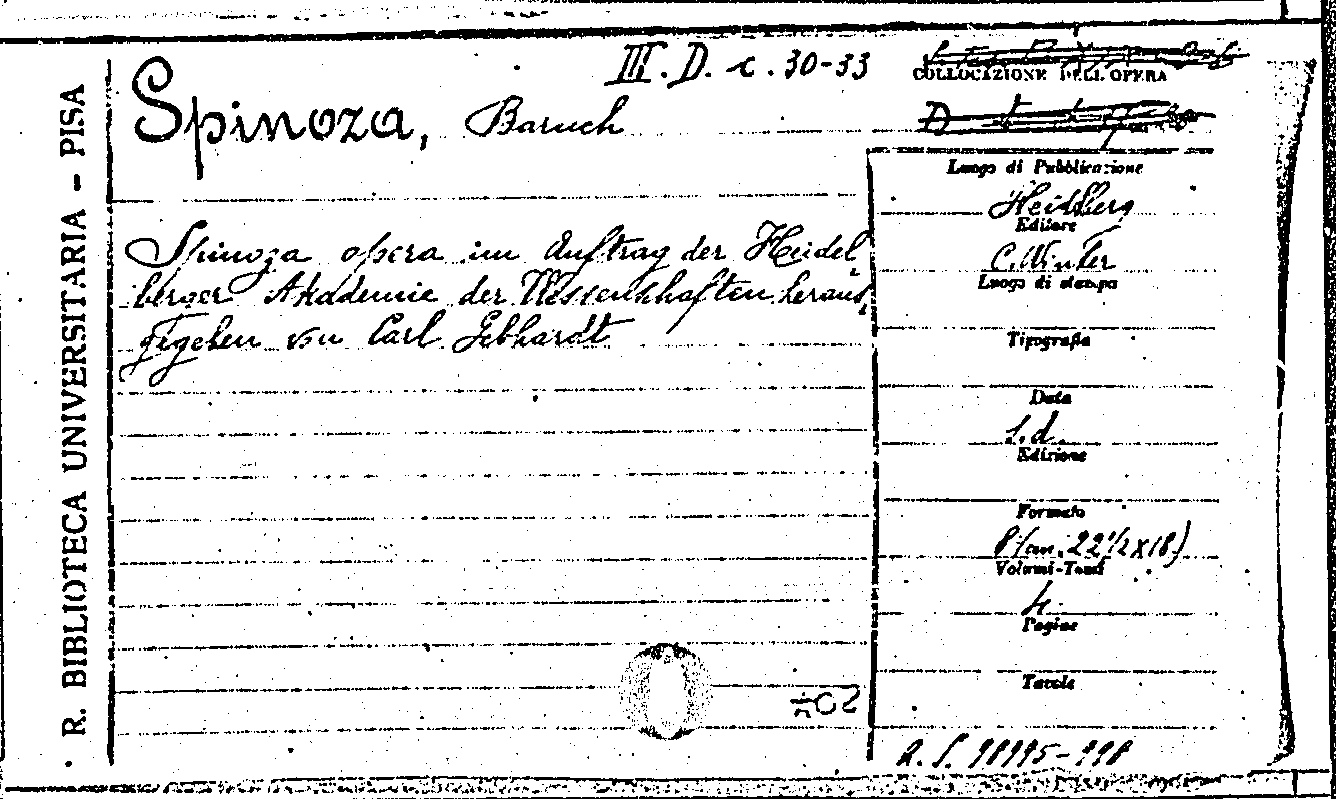 R. BIBLIOTECA UNIVERSITARIA - PISA
III. D. c. 30-33
COLLOCAZIONE DELL'OPERA
Spinoza, Baruch
Spinoza opera im Auftrag der Heidel
berger Akademie der Wissenschaften heraus,
gegeben von Carl Gebhardt
Luogo di Pubblicazione
Heidelberg
Editore
C. Winter
Luogo di stampa
Tipografia
Data
s.d.
Edizione
Formato
8° (cm. 22 1/2 x 18)
Volumi-Tomi
4.
Pagine
Tavole